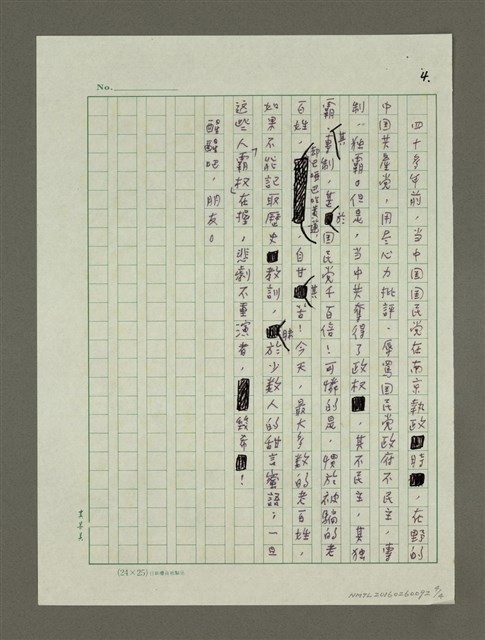 No.
4.
四十多年前，当中国国民党在南京執政時，在野的
中国共產党，用尽心力批評、辱罵国民党政府不民主，專
制，独霸。但是，当中共奪得了政权，其不民主，其独
霸，其專制，甚於国民党千百倍！可憐的是，慣於被騙的老
百姓，卻已啞巴吃黃蓮，自甘其苦！今天，最大多數的老百姓，
如果不能記取歷史教訓，昧於少數人的甜言蜜語；一旦
这些人「霸权」在握，悲劇不重演者，幾希！
醒醒吧，朋友。
(24×25)
NMTL20160260092 4/4